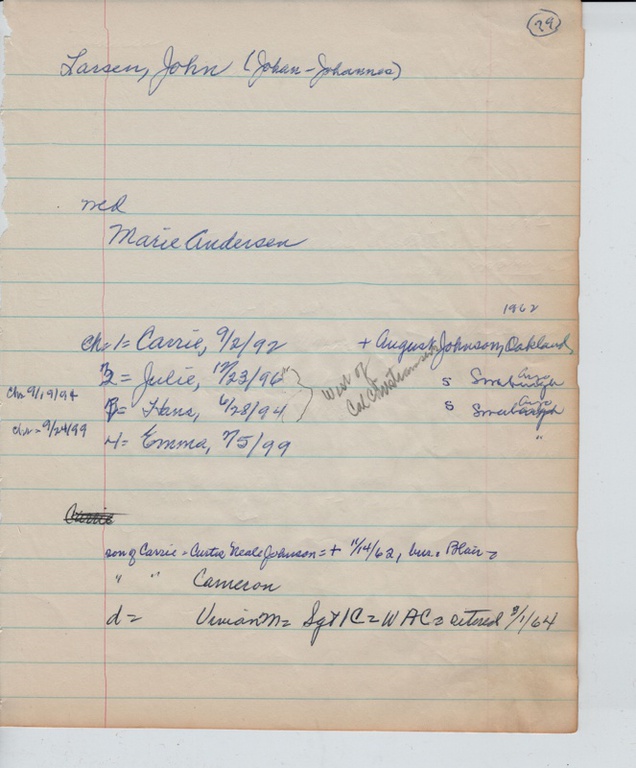 29
Larsen, John (Johan-Johannes)
md
Marie Andersen
1962
ch = 1 = Carrie, 9/2/92 + August Johnson, Oakland
3 2 = Julie, 12/23/96 S
chr 9/19/94 = Hans, 6/28/94 West of Cal S
chr = 9/24/99 4 = Emma, 7/5/99 "
Carrie
son of Carrie = Curtis Neale Johnson = + 11/14/62, bur. Blair =
" " Cameron
d = Vivian M = Sgt 1C = WAC = retired 3/1/64